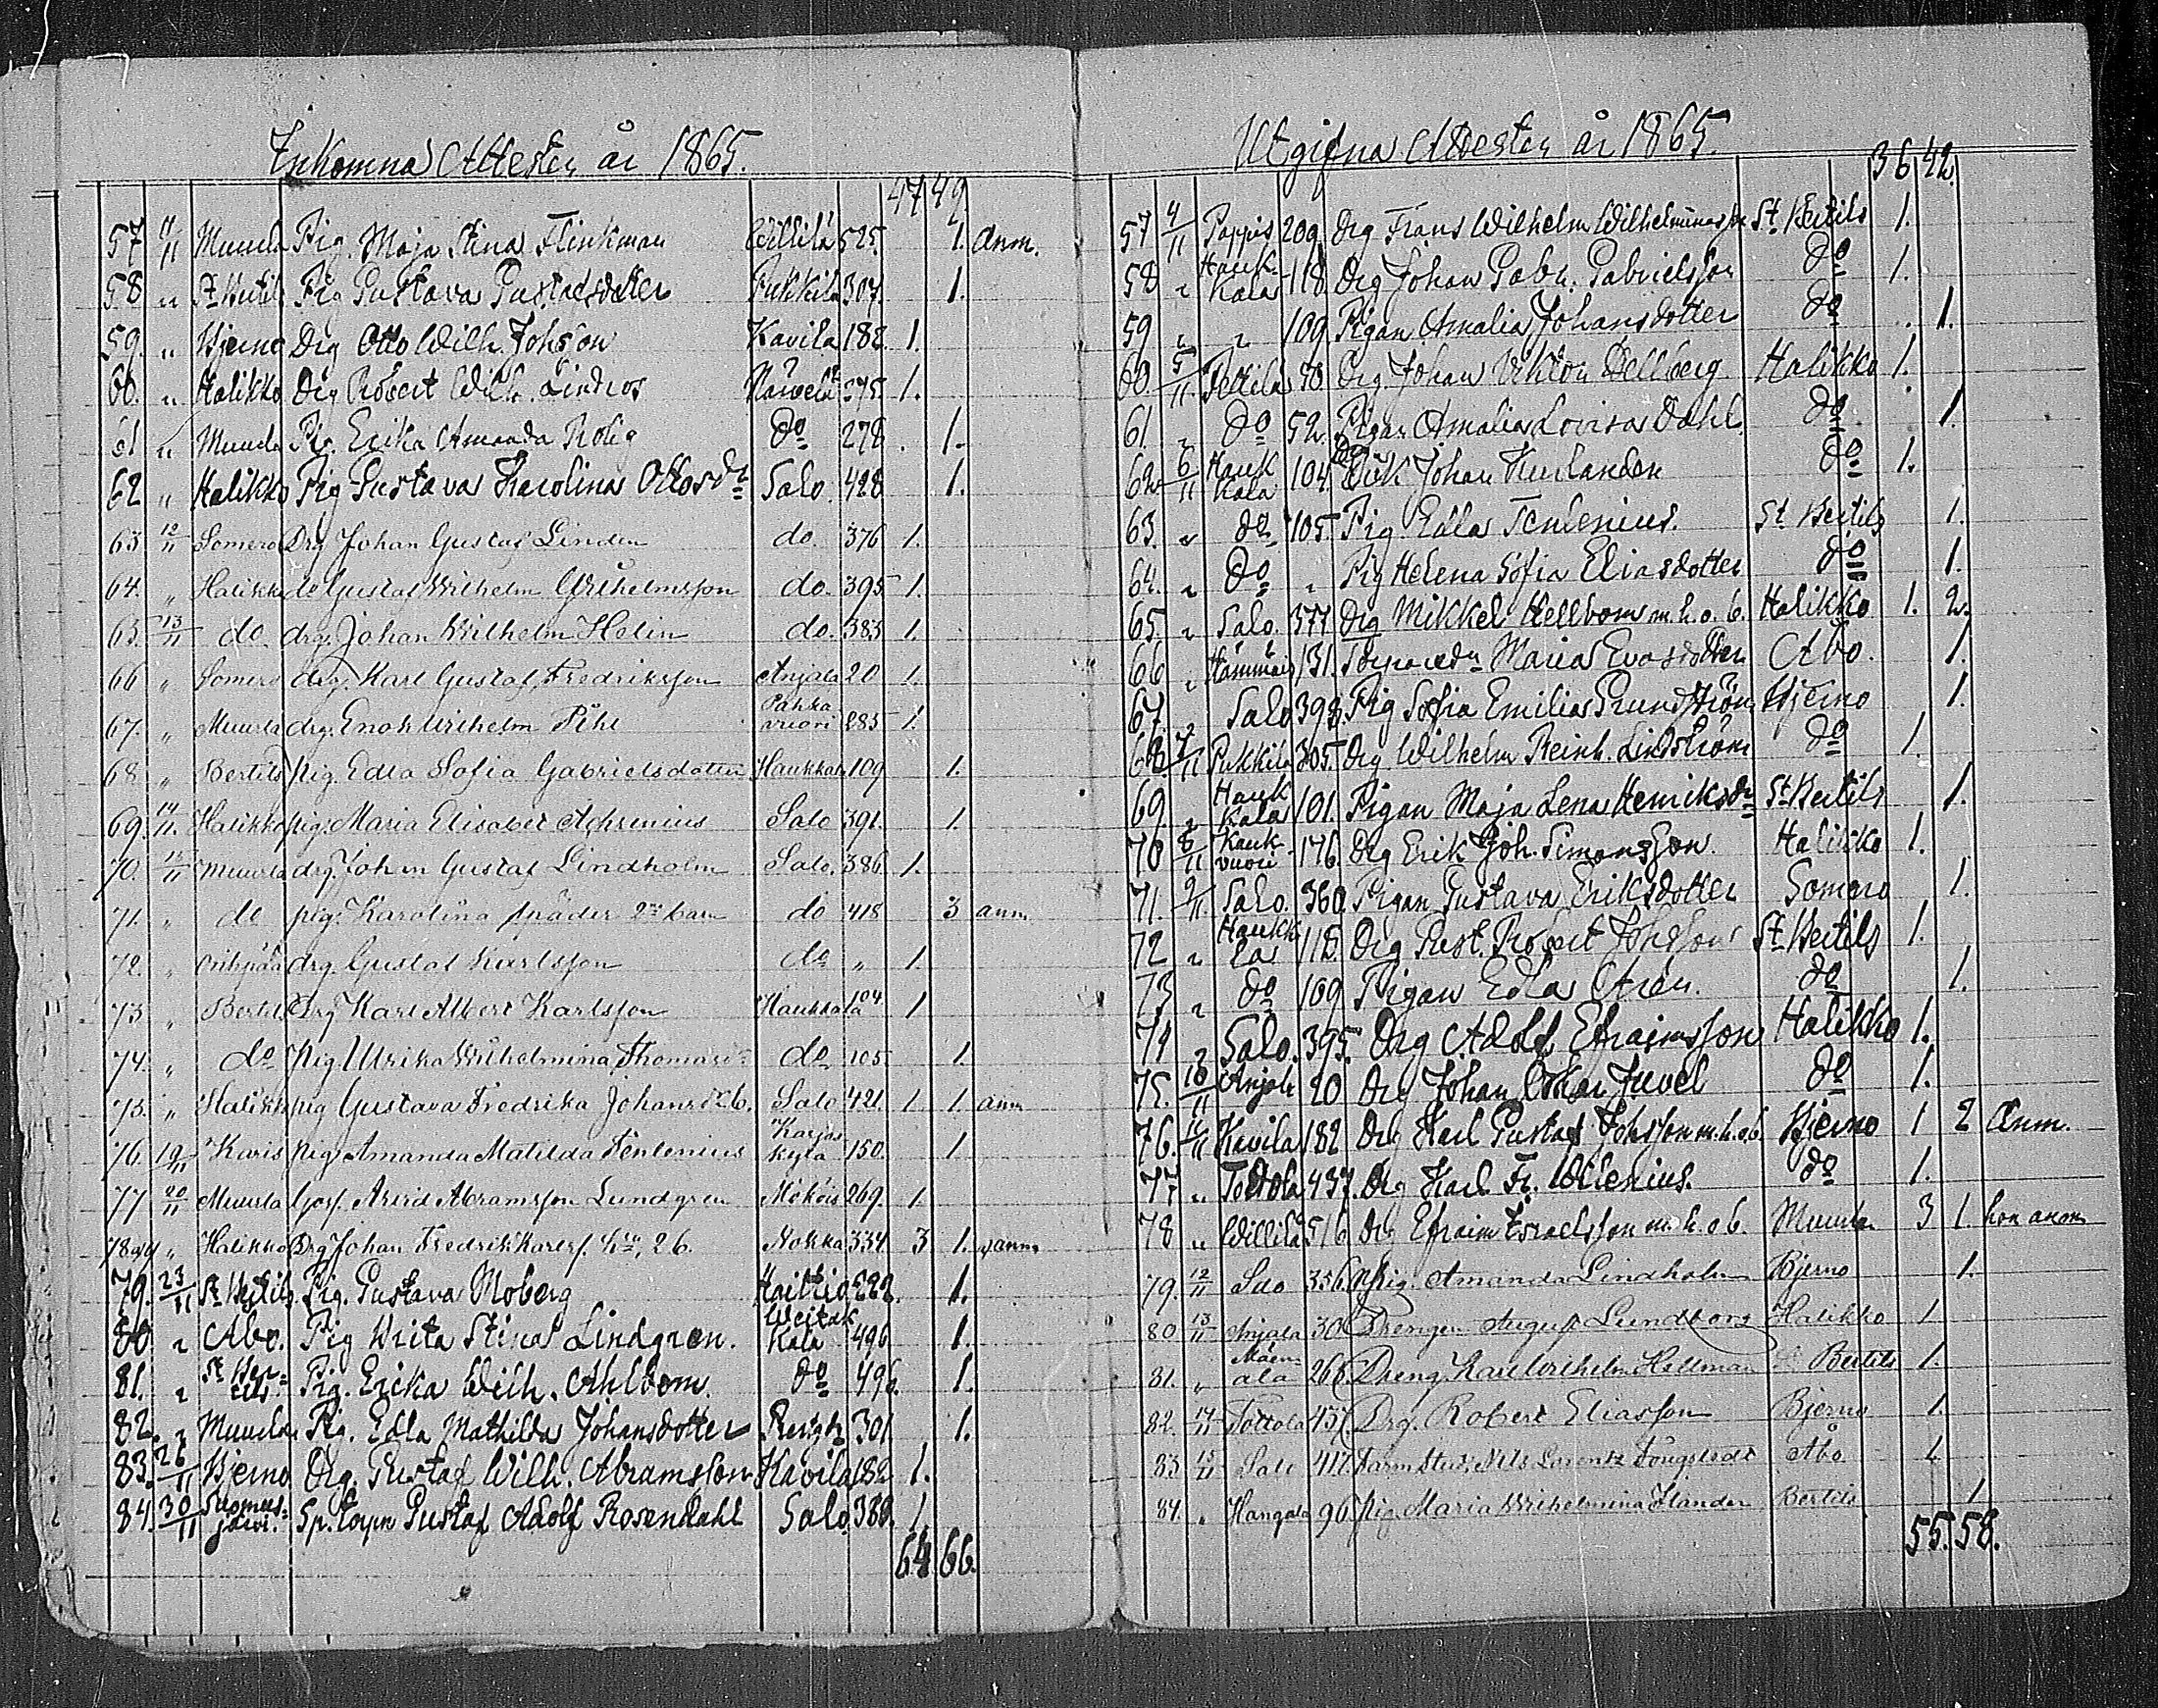 Inkomna Attester år 1865.
47 49.
57 11/11 Muurla Pig. Maja Stina Flinkman Willilä 525. 1. Anm.
58 " St Bertils Pig Gustava Gustafsdotter Pukkila 307. 1.
59. " Bjerno Drg Otto Wilh. Johsson Kavila 182. 1.
60. " Halikko Drg Robert Wilh. Lindros 275. 1.
61 " Muurla Pig. Erika Amanda Rolig do 278. 1.
62 " Halikko Pig Gustava Karolina Ottosdr Salo. 428 1.
63 12/11 Somero Drg Johan Gustaf Linden do. 376 1.
64. " Halikko do Gustaf Wilhelm Wilhelmsson do. 395 1.
65. 13/11 do. drg. Johan Wilhelm Helin do. 383 1.
66 " Somero drg. Karl Gustaf Fredriksson Anjala 20 1.
67. " Muurla drg. Enok Wilhelm Pihl Pahka vuori 285 1.
68 " Bertils pig. Edla Sofia Gabrielsdotter Haukkala 109 1.
69. 14/11. Halikko pig. Maria Elisabet Achrenius Salo 391. 1.
70. 15/11 Muurla drg. Johan Gustaf Lindholm Salo. 386. 1.
71. " do pig. Karolina 2ne barn do 418 3 anm
72. " drg. Gustaf Karlsson do " 1.
73. " Bertils Drg Karl Albert Karlsson Haukkala 104. 1
74. " do Pig Ulrika Wilhelmina Thomasdr do 105 1.
75. " Halikko pig Gustava Fredrika Johansdr b. Salo 421. 1 1. anm
76. 19/11 Karis pig Amanda Matilda Tenlenius Karjas kylä 150. 1
77 20/11 Muurla Gosf. Arvid Abramsson Lundgren 269. 1.
78 " Halikko Drg Johan Fredrik Karlss. 26. Nokka 334 3 1. anm
79. 23/11 St Bertils. Pig. Gustava Moberg Haittio 222. 1.
80 " Åbo. Pig Writa Stina Lindgren. Weitak kala 496 1.
81. " St Ber- tils. Pig. Erika Wilh. Ahlbom. do 496. 1.
82. " Muurla Pig. Edla Mathilda Johansdotter 301 1.
83. 26/11 Bjerno Drg. Gustaf Wilh. Abramsson Kavila 182 1.
84. 30/11 Suomus- järvi. Sp. torpn Gustaf Adolf Rosendahl Salo. 380. 1.
64 66.
Utgifna Attester år 1865.
36 42.
57 4/11 Pappis 209. Drg Frans Wilhelm Wilhelminasson St. Bertils 1.
58 " Hauk- kala 118. Drg Johan Gabr. Gabrielsson do 1.
59 " " 109 Pigan Amalia Johansdotter do 1.
60 5/11 Drg. Johan Viktor Dellberg Halikko 1.
61. " do 52. Pigan Amalia Lovisa Dahl. do. 1.
62 6/11 Hauk kala 104. Johan Kurlanden do. 1.
63. " do 105. Pig. Edla Tenlenius. St. Bertils 1.
64. " do " Pig Helena Sofia Eliasdotter do 1.
65. " Salo. 377 Drg Mikkel Hellbom m. h. o. b. Halikko 1. 2.
66 " Hämmäis 131. Maria Evasdotter Åbo. 1.
67. " Salo 398. Pig Sofia Emilia Grundström Bjerno 1.
68. 7/11 Pukkila 305. Drg. Wilhelm Reinh. Lindström do 1.
69. " Hauk kala 101. Pigan Maja Lena Henriksdr St Bertils 1.
70 8/11 Kauk- vuori 176. Drg Erik Joh. Simonsson. Halikko 1.
71. 9/11. Salo. 360. Pigan Gustava Eriksdotter Somero 1.
72 " Haukk la 115. Drg Gust. Robert Johsson St Bertils 1.
73 " do 109 Pigan Edla Arén. do 1.
74 " Salo. 395. Drg Adolf Efraimsson Halikko 1.
75. 10/11 Anjala 20 Drg Johan Oskar Juvel do 1.
76. 11/11 Kavila 182 Drg Karl Gustaf Johsson m. h. o b. Bjerno 1 2 Anm.
77. " Tottola 437. Drg Karl Fr. Wilenius. do 1.
78 " Willilä 516. Drg Efraim Israelsson m. h. o b. Muurla 3 1.
79. 12/11 Salo 356. Pig. Amanda Lindholm Bjerno 1.
80 13/11 Anjala 30. Drengen August Lundfors Halikko 1
81. " Mäen- ala 266. Dreng. Karl Wilhelm Hellman St Bertils 1.
82. 14/11 Tottola 437. Drg. Robert Eliasson Bjerno 1.
83 15/11 Salo 417. Nils Lorentz Åbo 1.
84. " Hangala 90 Pig. Maria Wilhelmina Bertils 1
55. 58.